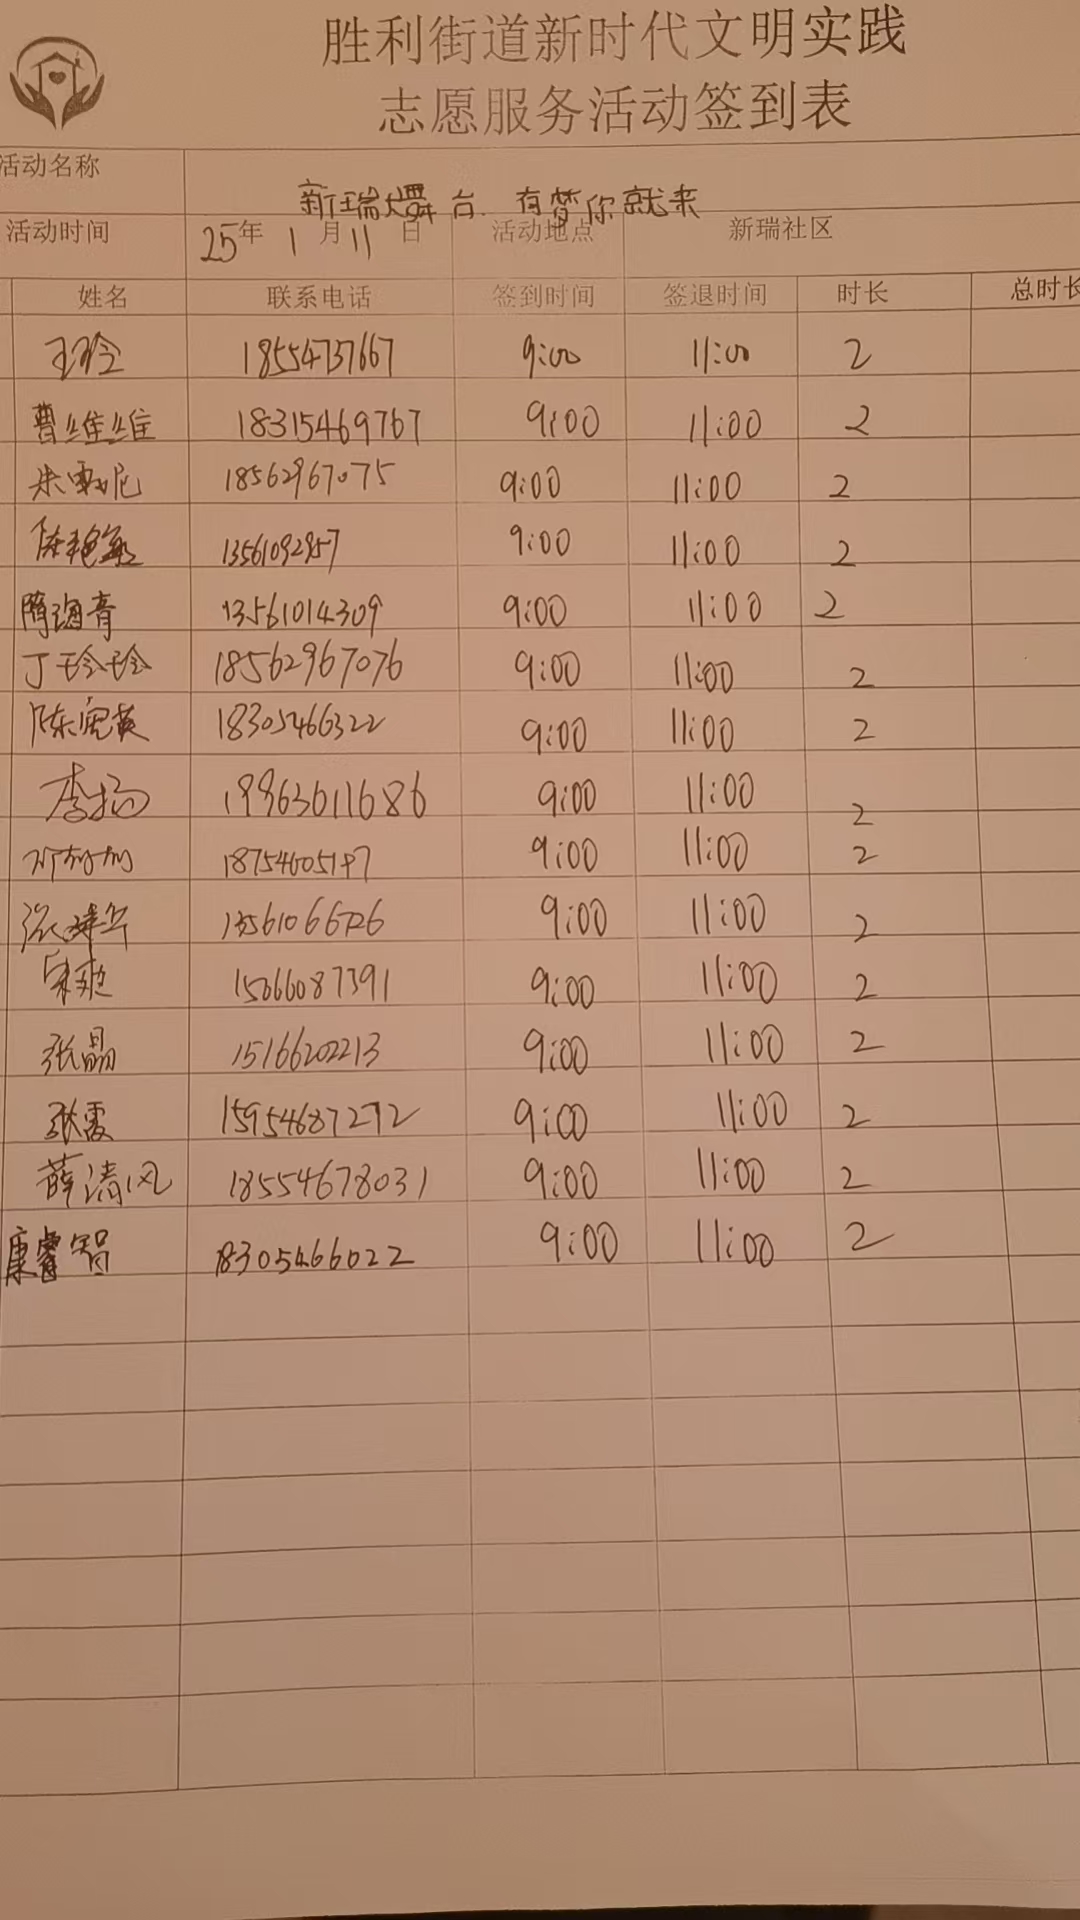 胜利街道新时代文明实践
志愿服务活动签到表
活动名称 新瑞大舞台 有梦你就来
活动时间 25年 1月11日 活动地点 新瑞社区
姓名 联系电话 签到时间 签退时间 时长 总时长
王玲 18554737667 9:00 11:00 2
曹维维 18315469767 9:00 11:00 2
朱 18562967075 9:00 11:00 2
陈艳 9:00 11:00 2
隋海青 13561014309 9:00 11:00 2
丁玲玲 18562967076 9:00 11:00 2
陈英 18305466322 9:00 11:00 2
李扬 19963611686 9:00 11:00 2
9:00 11:00 2
9:00 11:00 2
宋爽 15066087391 9:00 11:00 2
张晶 15166202213 9:00 11:00 2
张霞 15954687292 9:00 11:00 2
薛清风 18554678031 9:00 11:00 2
康睿智 18305466022 9:00 11:00 2